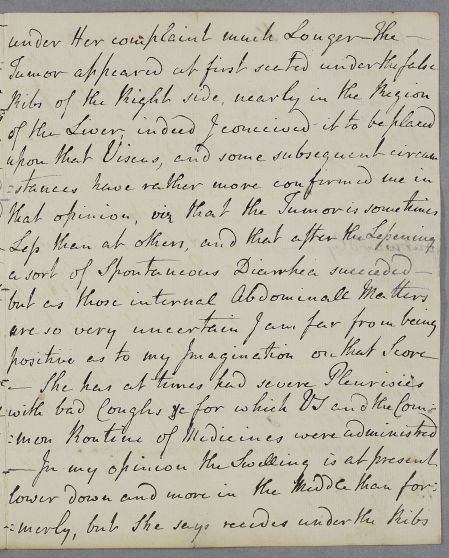 under Her complaint much Longer - The -
Tumor appeared at first seated under the false
Ribs of the Right side, nearly in the Region
of the Liver, indeed I conceived it to be placed
upon that Viscus, and some subsequent circum
=stances have rather more confirmed me in
that opinion, viz that the Tumor is sometimes
Less than at others, and that after the Lessening
a sort of Spontaneous Diarrhea succeeded -
but as those internal Abdominall Matters
are so very uncertain I am far from being
positive as to my Imagination on that Score
- She has at times had severe Pleurisies
with bad Coughs &c for which VS and the Com=
=mon Routine of Medicines were administred
- In my opinion the Swelling is at present
lower down and more in the Middle than for=
=merly, but She says recedes under the Ribs